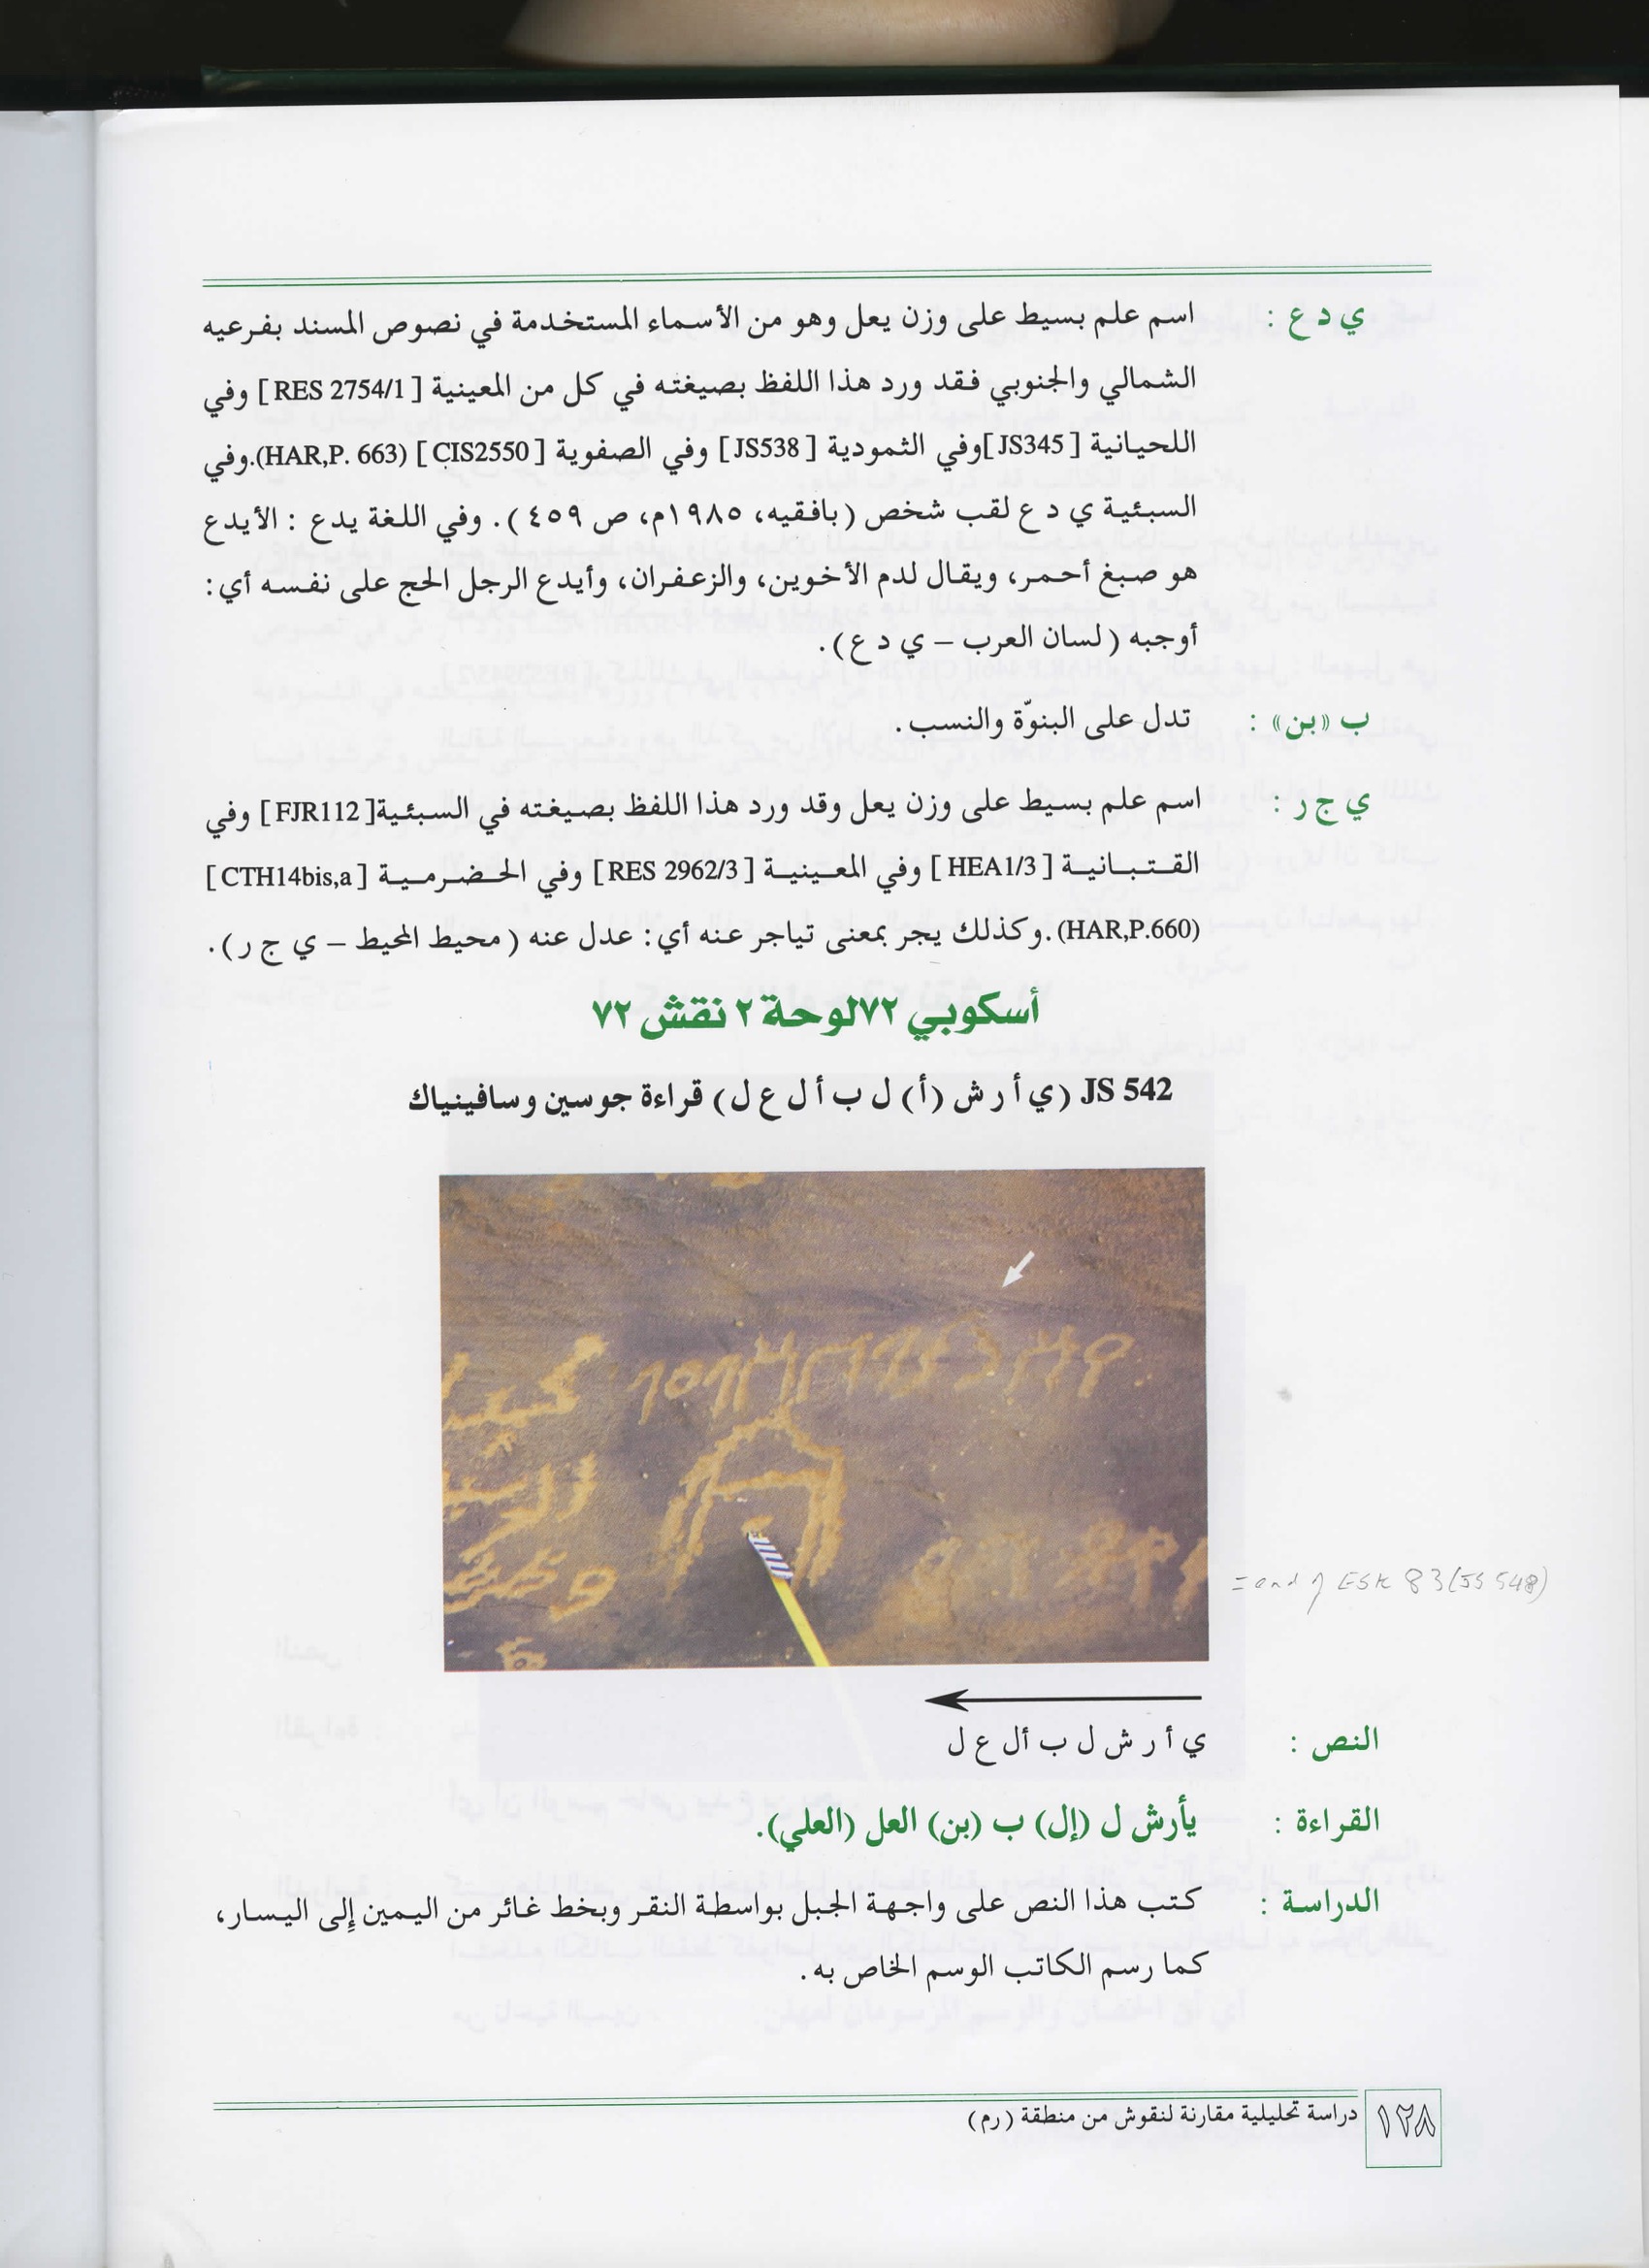 ي د ع : اسم علم بسيط على وزن يعل وهو من الأسماء المستخدمة في نصوص المسند بفرعيه
الشمالي والجنوبي فقد ورد هذا اللفظ بصيغته في كل من المعينية [RES 2754/1] وفي
اللحيانية [JS345] وفي الثمودية [JS538] وفي الصفوية [CIS2550] (HAR,P. 663).وفي
السبئية ي د ع لقب شخص (بافقيه، ١٩٨٥م، ص ٤٥٩). وفي اللغة يدع : الأيدع
هو صبغ أحمر، ويقال لدم الأخوين، والزعفران، وأيدع الرجل الحج على نفسه أي :
أوجبه (لسان العرب – ي د ع).
ب «بن» : تدل على البنوّة والنسب.
ي ج ر : اسم علم بسيط على وزن يعل وقد ورد هذا اللفظ بصيغته في السبئية[FJR112] وفي
القتبانية [HEA1/3] وفي المعينية [RES 2962/3] وفي الحضرمية [CTH14bis,a]
(HAR,P.660).وكذلك يجر بمعنى تياجر عنه أي: عدل عنه (محيط المحيط – ي ج ر).
أسكوبي ٧٢لوحة ٢ نقش ٧٢
JS 542 (ي أ ر ش (أ) ل ب أ ل ع ل) قراءة جوسين وسافينياك
= and of ESK 83 (JS 548)
النص : ي أ ر ش ل ب أل ع ل
القراءة : يأرش ل (إل) ب (بن) العل (العلي).
الدراسة : كتب هذا النص على واجهة الجبل بواسطة النقر وبخط غائر من اليمين إلى اليسار،
كما رسم الكاتب الوسم الخاص به.
١٢٨ دراسة تحليلية مقارنة لنقوش من منطقة (رم)